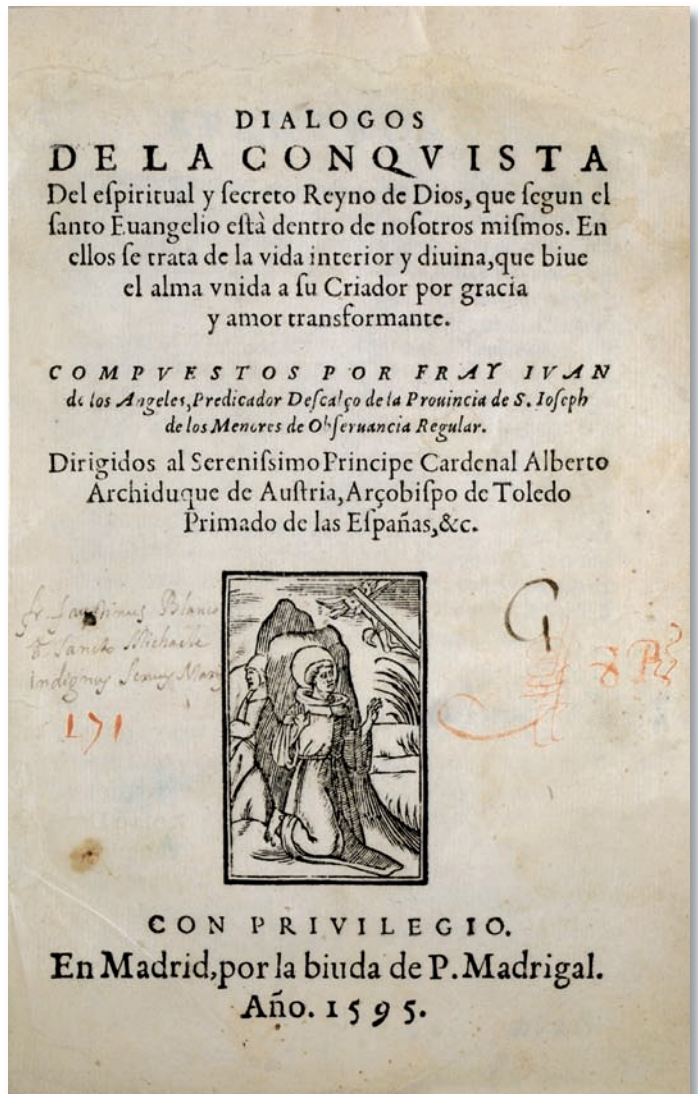 DIALOGOS
DE LA CONQVISTA
Del eſpiritual y ſecreto Reyno de Dios, que ſegun el
ſanto Euangelio eſtà dentro de noſotros miſmos. En
ellos ſe trata de la vida interior y diuina, que biue
el alma vnida a ſu Criador por gracia
y amor transformante.
COMPVESTOS POR FRAY IVAN
de los Angeles, Predicador Deſcalço de la Prouincia de S. Ioſeph
de los Menores de Obſeruancia Regular.
Dirigidos al Sereniſsimo Principe Cardenal Alberto
Archiduque de Auſtria, Arçobiſpo de Toledo
Primado de las Eſpañas, &c.
fr. Faustinus Blanco
Sancto Michaele
indignus Seruus
G
171
CON PRIVILEGIO.
En Madrid, por la biuda de P. Madrigal.
Año. 1595.